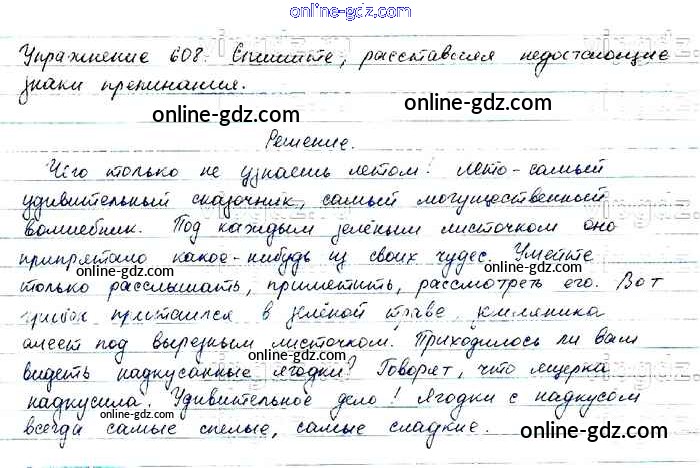 online-gdz.com
Упражнение 608. Спишите, расставляя недостающие
знаки препинания.
online-gdz.com online-gdz.com
Решение.
Чего только не узнаешь летом! Лето - самый
удивительный сказочник, самый могущественный
волшебник. Под каждым зелёным листочком оно
припрятало какое-нибудь из своих чудес. Умейте
online-gdz.com online-gdz.com
только расслышать, приметить, рассмотреть его. Вот
грибок притаился в зелёной траве, земляника
алеет под вырезным листочком. Приходилось ли вам
online-gdz.com
видеть надкусанные ягодки? Говорят, что ящерка
надкусила. Удивительное дело! Ягодки с надкусом
online-gdz.com
всегда самые спелые, самые сладкие.
online-gdz.com